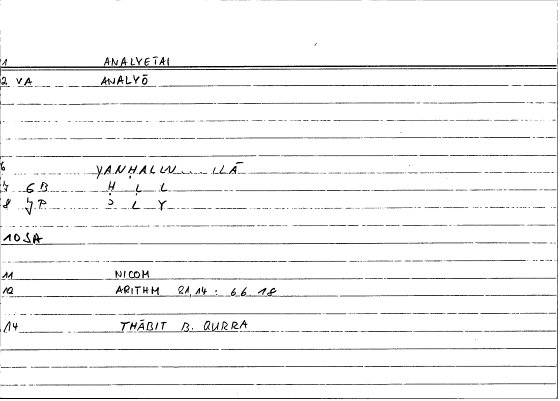 1 ANALYETAI
2 VA ANALYŌ
6 YANḤALLU... ILĀ
7 GB Ḥ L L
8 JP Ɔ L Y
10 SA
11 NICOM
12 ARITHM 21,14 : 66 18
14 THĀBIT B. QURRA